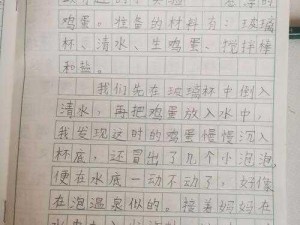 鸡蛋。准备的材料有：玻璃
杯、清水、生鸡蛋、搅拌棒
和盐。
我们先在玻璃杯中倒入
清水，再把鸡蛋放入水中，
我发现这时的鸡蛋慢慢沉入
杯底，还冒出了几个小泡泡，
便在水底一动不动了，好像
在泡温泉似的。接着妈妈在